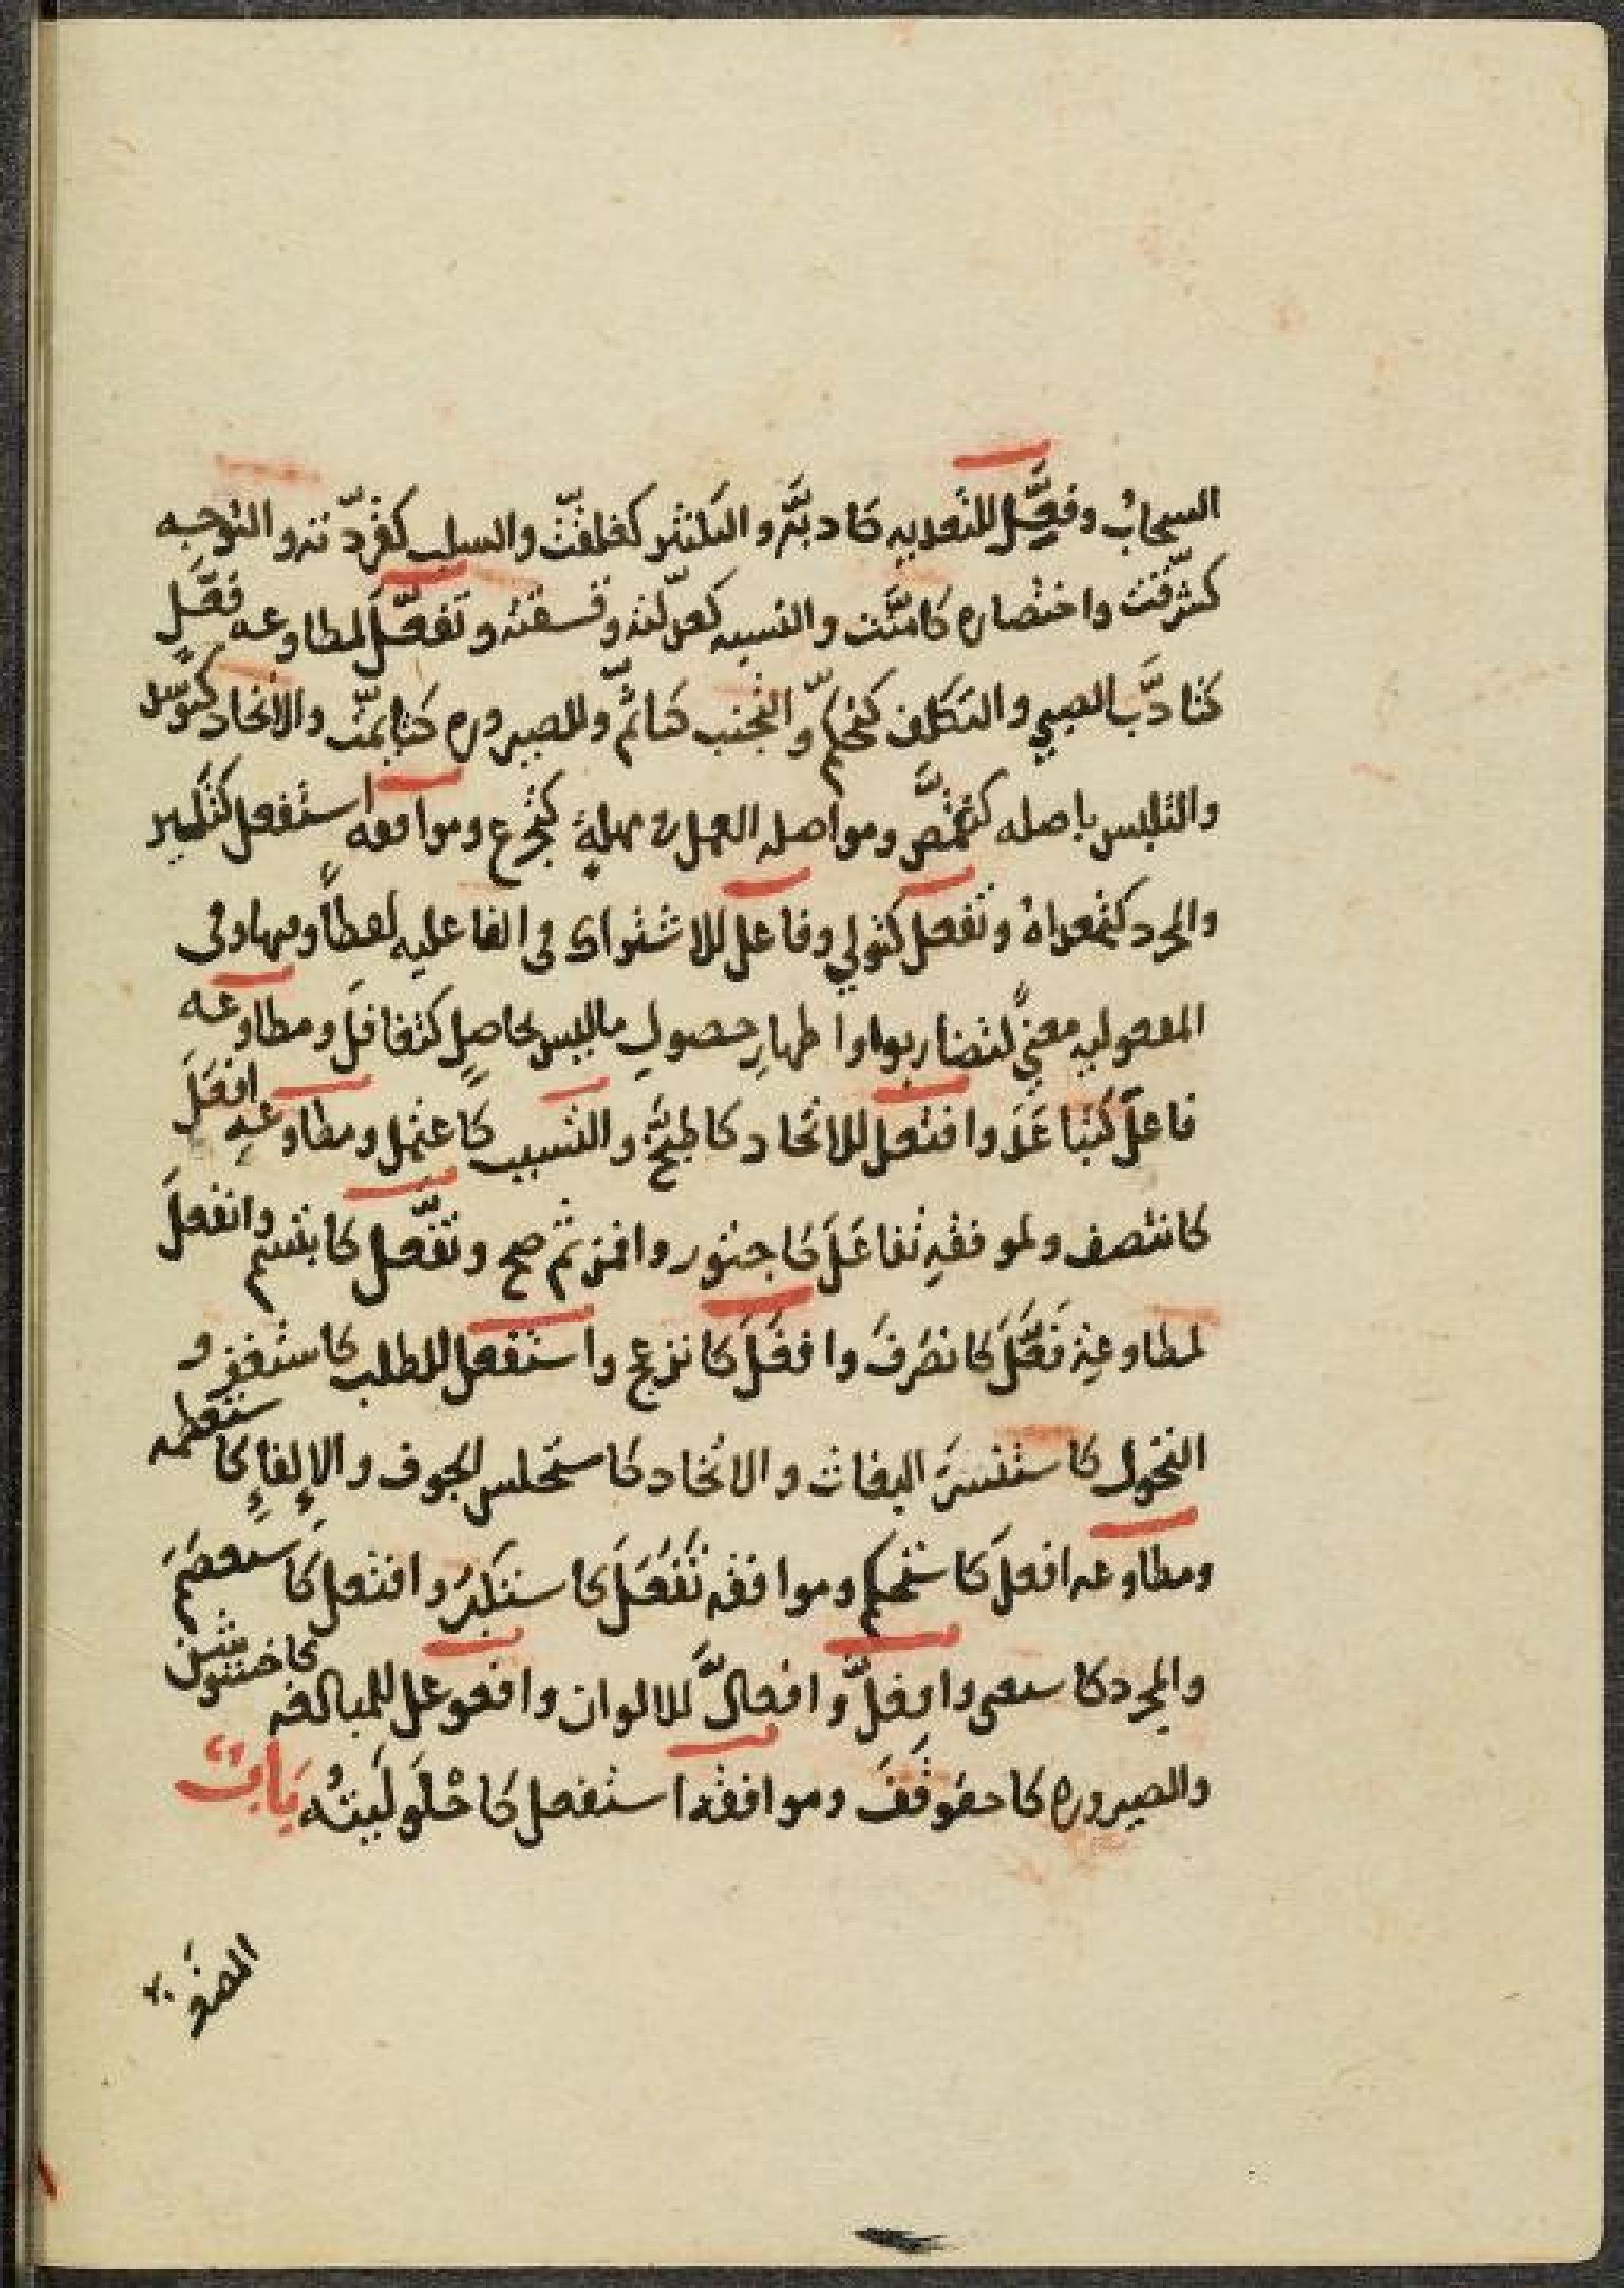 السحابُ وفعَّل للتعديه كادبتَّه والتكثير كغلقّت والسلب كقرّدته والتوجه
كشرّقت واختصاره كامّنت والنسبه كعدّلته وفسقته وتَفَعّل لمطاوعه فعّل
كتادّب الصبي والتكلف كتحلّم والتجنب كتاثّم وللصيروره كتايمّت والاتخاد كتوسّد
والتلبس باصله كتقمّص ومواصله العمل في مهلةٍ كتجرع وموافقه استفعل كتكبر
والمجرد كتعداهُ وتفعل كتولي وفاعل للاشتراك في الفاعليه لفظاً وفيها وفي
المفعوليه معنيً لتضاربوا واظهارِ حصولِ ما ليس بحاصلٍ كتغافل ومطاوعه
فاعلَ كتباعَدَ وافتعل للاتخاد كاطبخَّ والتسبب كاعتمل ومطاوعه افعَلَ
كانتصف ولموفقهِ تفاعَلَ كاجتور وافمن ثم صح وتفَّعل كابتسم وانفعلَ
لمطاوعةِ فَعَّلَ كانصَرفَ وافعَلَ كانزعج واستفعل للطلب كاستغفر و
التحول كاستنسرَ البغاث والاتخاد كاستحلس الجوف والإلفاءِ كاستعظمه
ومطاوعه افعلَ كاستحكم وموافقه تَفَعَلَ كاستكبرَ وافتعل كاستعصَمَ
والمجرد كاستغني وافعلّ وافعالَّ للالوان وافعوعل للمبالغه كاخشوشن
والصيروره كاحقوقَفَ وموافقه استفعل كاحْلَولَيتُه بَابٌ
المصَو